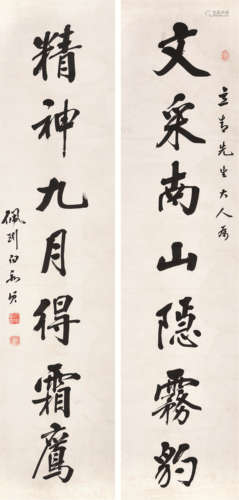 文采南山隱霧豹
立青先生大人属
精神九月得霜鷹
佩珂白永貞